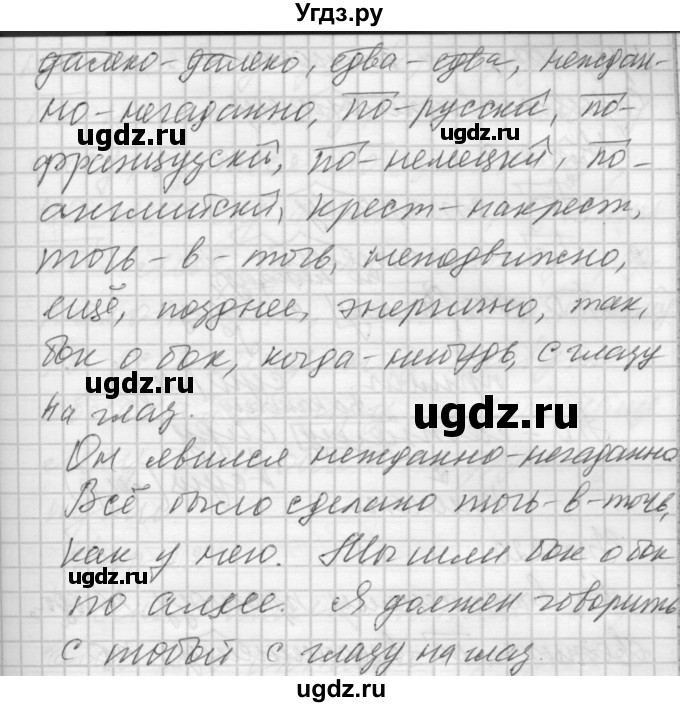 Угдз.ру
далеко-далеко, едва-едва, неждан-
но-негаданно, по-русски, по-
ugdz.ru ugdz.ru
французски, по-немецки, по-
английски, крест-накрест,
точь-в-точь, неподвижно,
ещё, позднее, энергично, так,
бок о бок, когда-нибудь, с глазу
ugdz.ru ugdz.ru
на глаз.
Он явился нежданно-негаданно
Всё было сделано точь-в-точь,
как у него. Мы шли бок о бок
ugdz.ru
по аллее. Я должен говорить
с тобой с глазу на глаз.
ugdz.ru